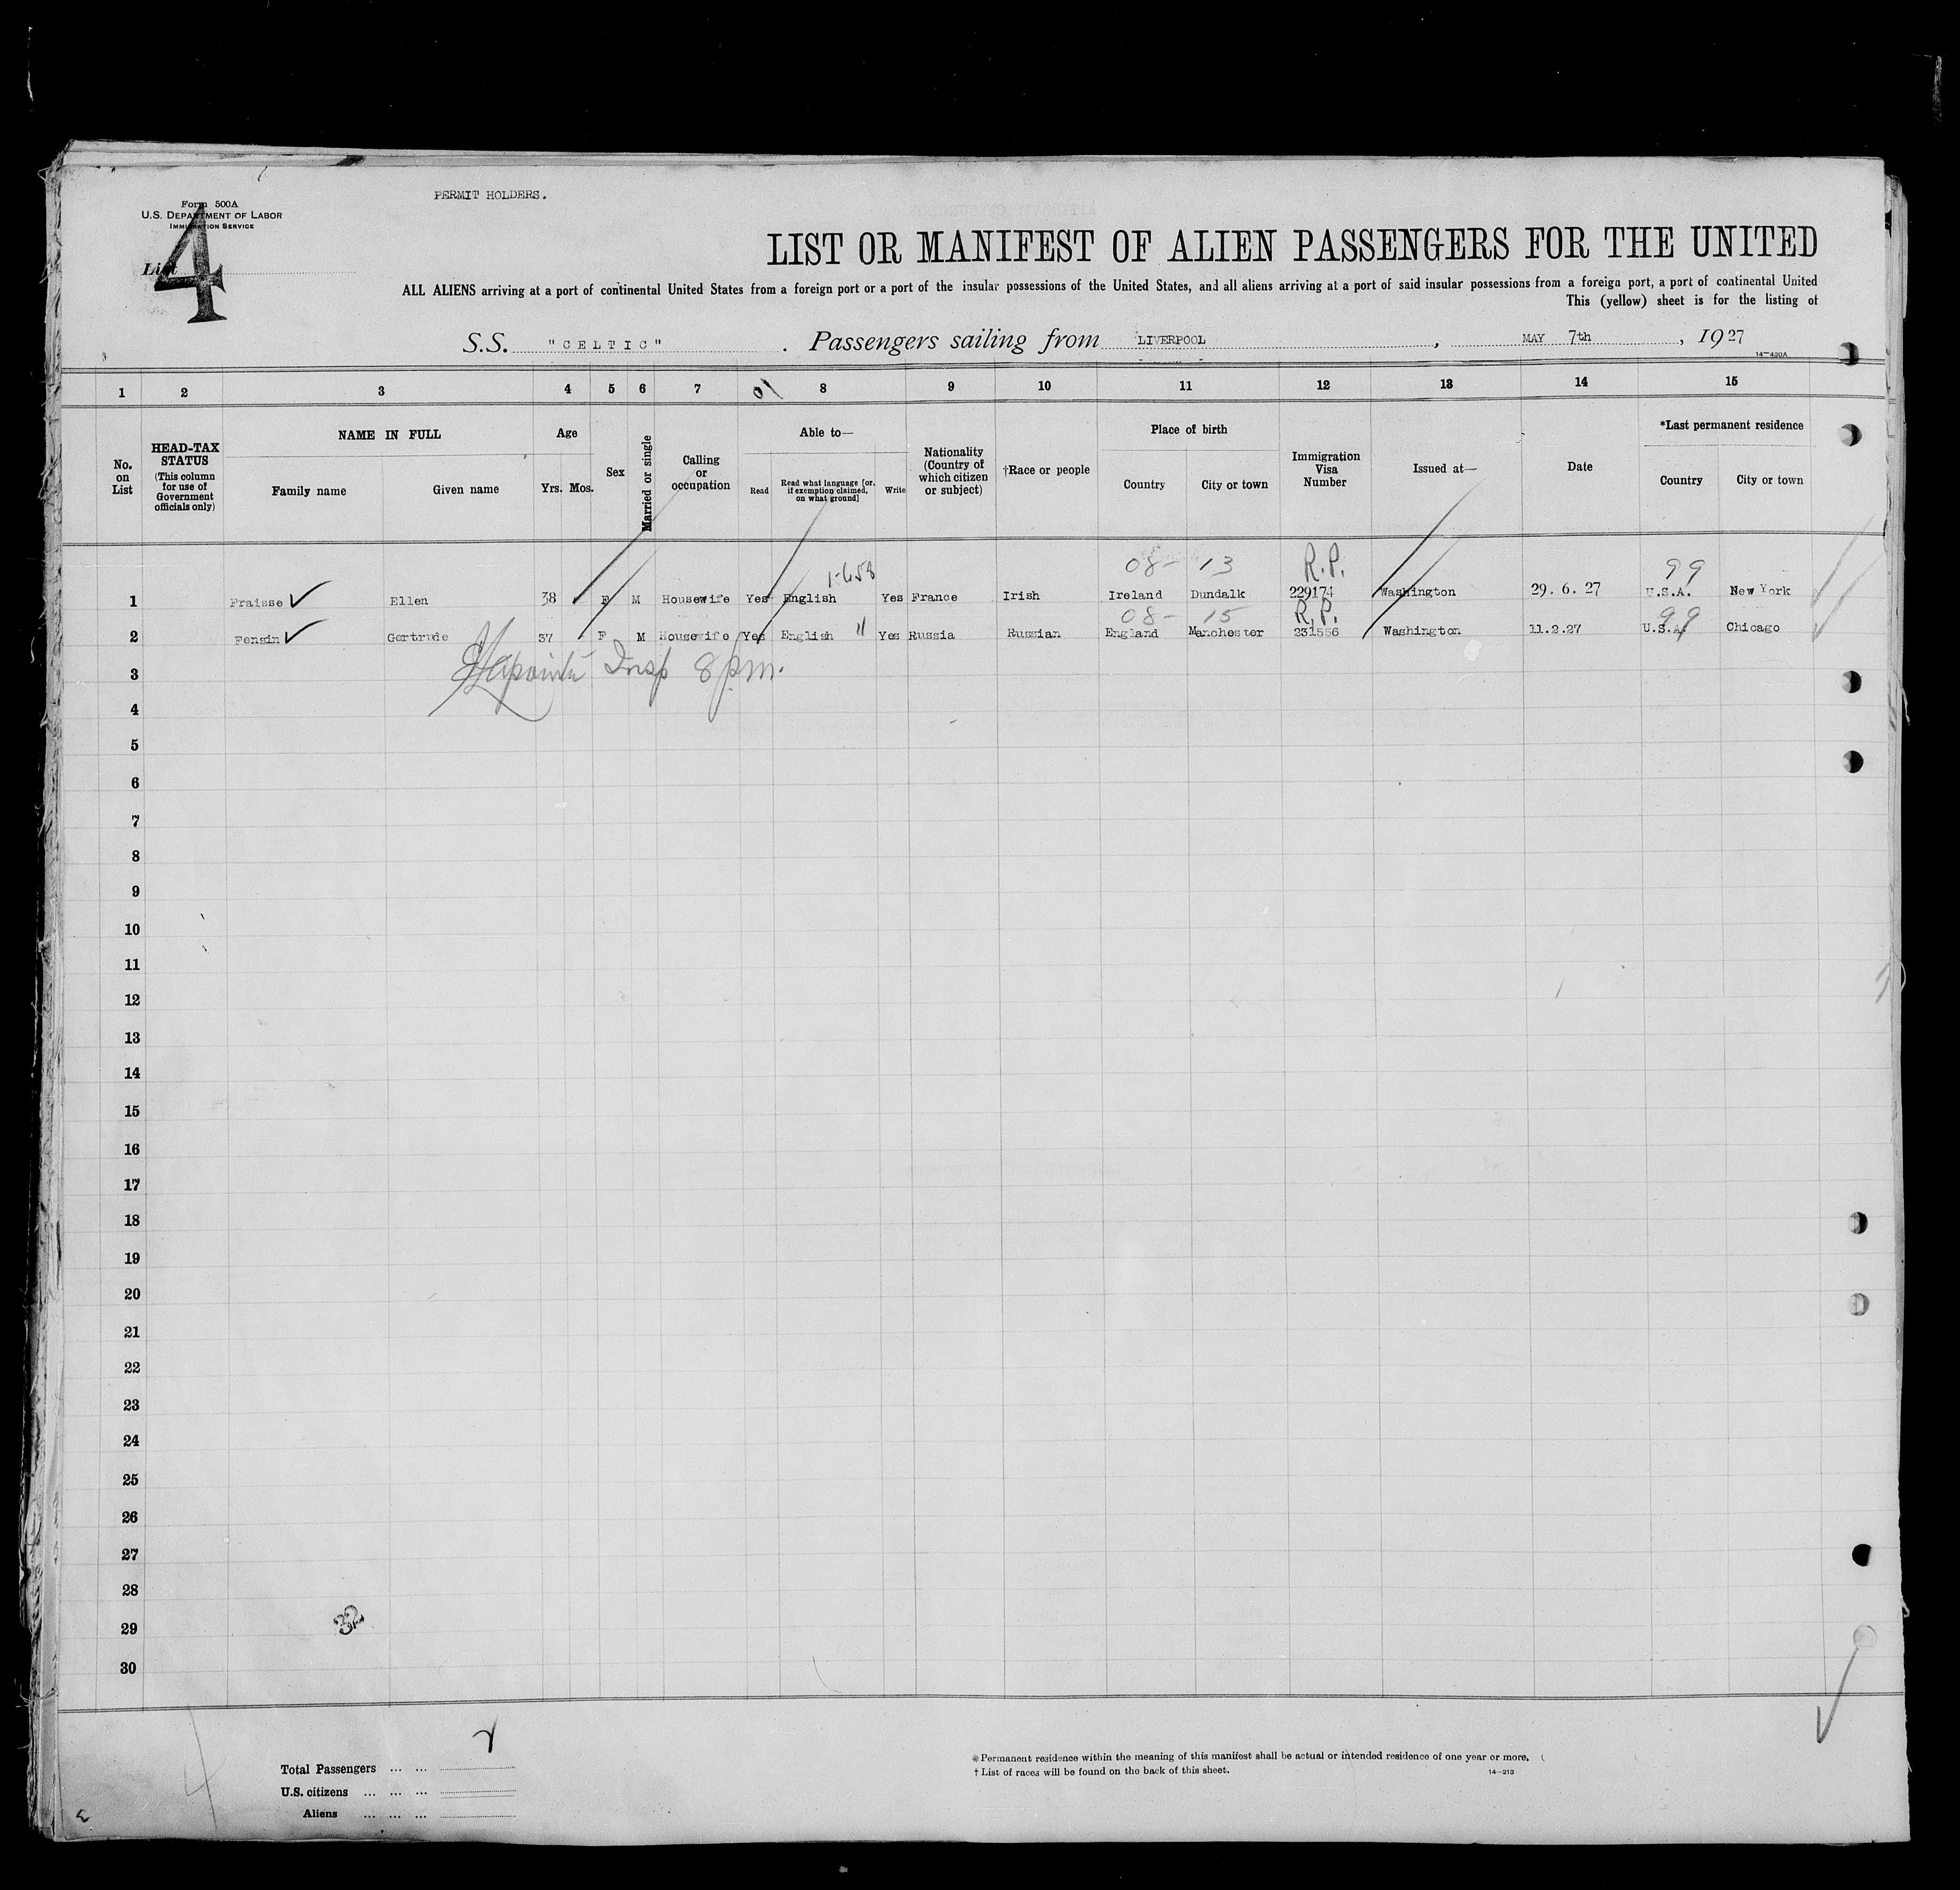 PERMIT HOLDERS.
Form 500A
U.S. DEPARTMENT OF LABOR
IMMIGRATION SERVICE
List 4
LIST OR MANIFEST OF ALIEN PASSENGERS FOR THE UNITED
ALL ALIENS arriving at a port of continental United States from a foreign port or a port of the insular possessions of the United States, and all aliens arriving at a port of said insular possessions from a foreign port, a port of continental United
This (yellow) sheet is for the listing of
S.S. "CELTIC" . Passengers sailing from LIVERPOOL , MAY 7th , 1927
14—430A
1 2 3 4 5 6 7 8 9 10 11 12 13 14 15
No. on List
HEAD-TAX STATUS (This column for use of Government officials only)
NAME IN FULL
Family name Given name
Age
Yrs. Mos.
Sex
Married or single
Calling or occupation
Able to—
Read
Read what language [or, if exemption claimed, on what ground]
Write
Nationality (Country of which citizen or subject)
†Race or people
Place of birth
Country City or town
Immigration Visa Number
Issued at—
Date
*Last permanent residence
Country City or town
08- 13 R.P. 99
1 Fraisse Ellen 38 F M Housewife Yes English Yes France Irish Ireland Dundalk 229174 Washington 29.6.27 U.S.A. New York
08- 15 R.P. 99
2 Fensin Gertrude 37 F M Housewife Yes English " Yes Russia Russian England Manchester 231556 Washington 11.2.27 U.S.A. Chicago
3 Insp 8 p.m.
4
5
6
7
8
9
10
11
12
13
14
15
16
17
18
19
20
21
22
23
24
25
26
27
28
29 32
30
4
Total Passengers ... ...
U.S. citizens ... ... ...
Aliens ... ... ...
*Permanent residence within the meaning of this manifest shall be actual or intended residence of one year or more.
† List of races will be found on the back of this sheet.
14—213